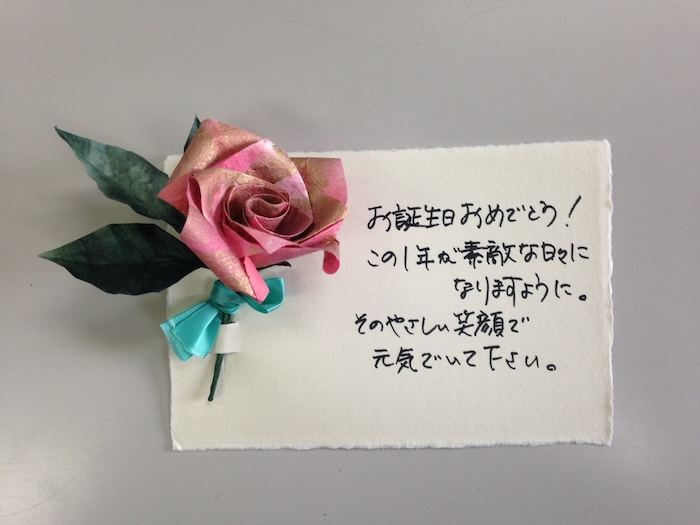 お誕生日おめでとう!
この1年が素敵な日々に
なりますように。
そのやさしい笑顔で
元気でいて下さい。